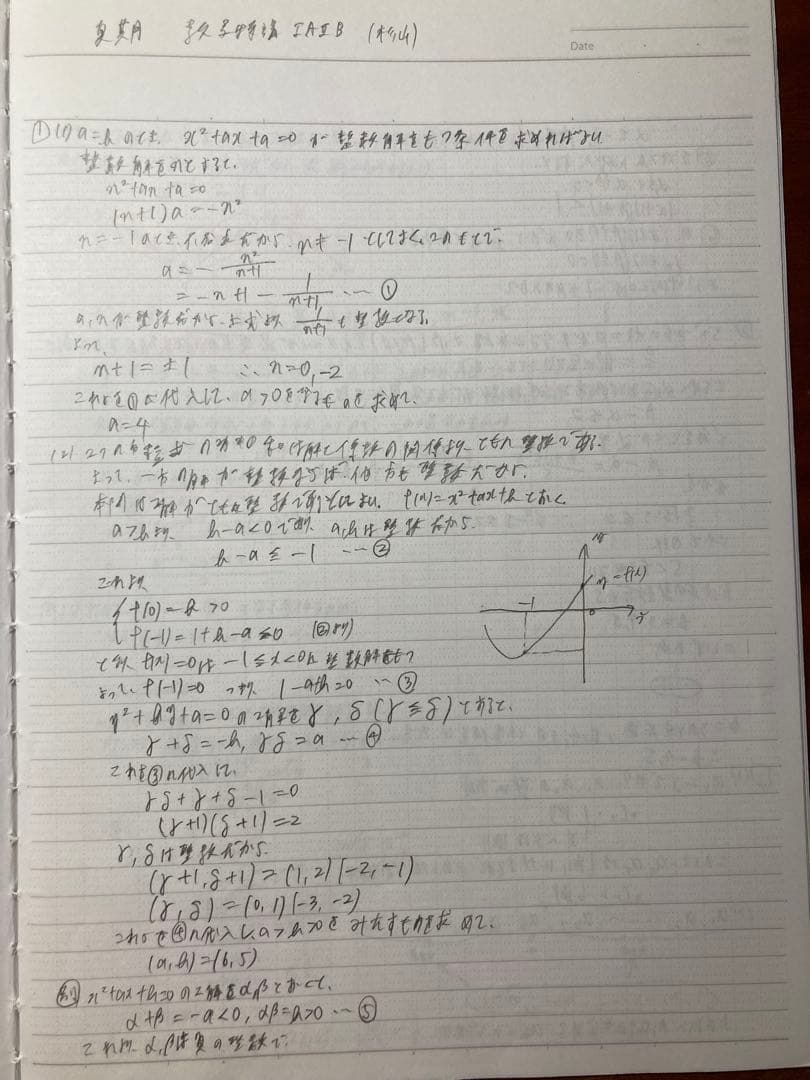 夏期 数学特論 IAIIB (杉山)
Date
① (1) a=bのとき、x²+ax+a=0 が整数解をもつ条件を求めればよい
整数解をnとすると、
n²+an+a=0
(n+1)a=-n²
n=-1のとき、不合理だから、n≠-1としてよく、このもとで、
a=-n²/(n+1)
=-n+1-1/(n+1) … ①
a,nが整数だから、上式より 1/(n+1) も整数となる
よって、
n+1=±1 ∴n=0,-2
これらを①に代入して、a>0を
a=4
(2) 2つの 解と係数の関係より、ともに整数である
よって、一方の解が整数ならば、他方も整数だから、
解がともに整数であればよい、f(x)=x²+ax+bとおく
a>bより b-a<0であり、a,bは整数だから、
b-a≦-1 … ②
これより
f(0)=b>0
f(-1)=1+b-a≦0 (②より)
f(x)=0は -1≦x<0に整数解をもつ
よって、f(-1)=0 つまり 1-a+b=0 … ③
y
y=f(x)
-1
0
x
x²+bx+a=0の2解をγ,δ(γ≦δ)とすると、
γ+δ=-b, γδ=a … ④
これを③に代入して、
γδ+γ+δ-1=0
(γ+1)(δ+1)=2
γ,δは整数だから、
(γ+1,δ+1)=(1,2)(-2,-1)
(γ,δ)=(0,1)(-3,-2)
これらを④に代入し、a>b>0をみたすものを求めて、
(a,b)=(6,5)
別 x²+ax+b=0の2解をα,βとおくと、
α+β=-a<0, αβ=b>0 … ⑤
これより、α,βは負の整数で、